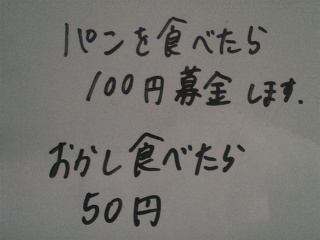 パンを食べたら
100円募金します.
おかし食べたら
50円